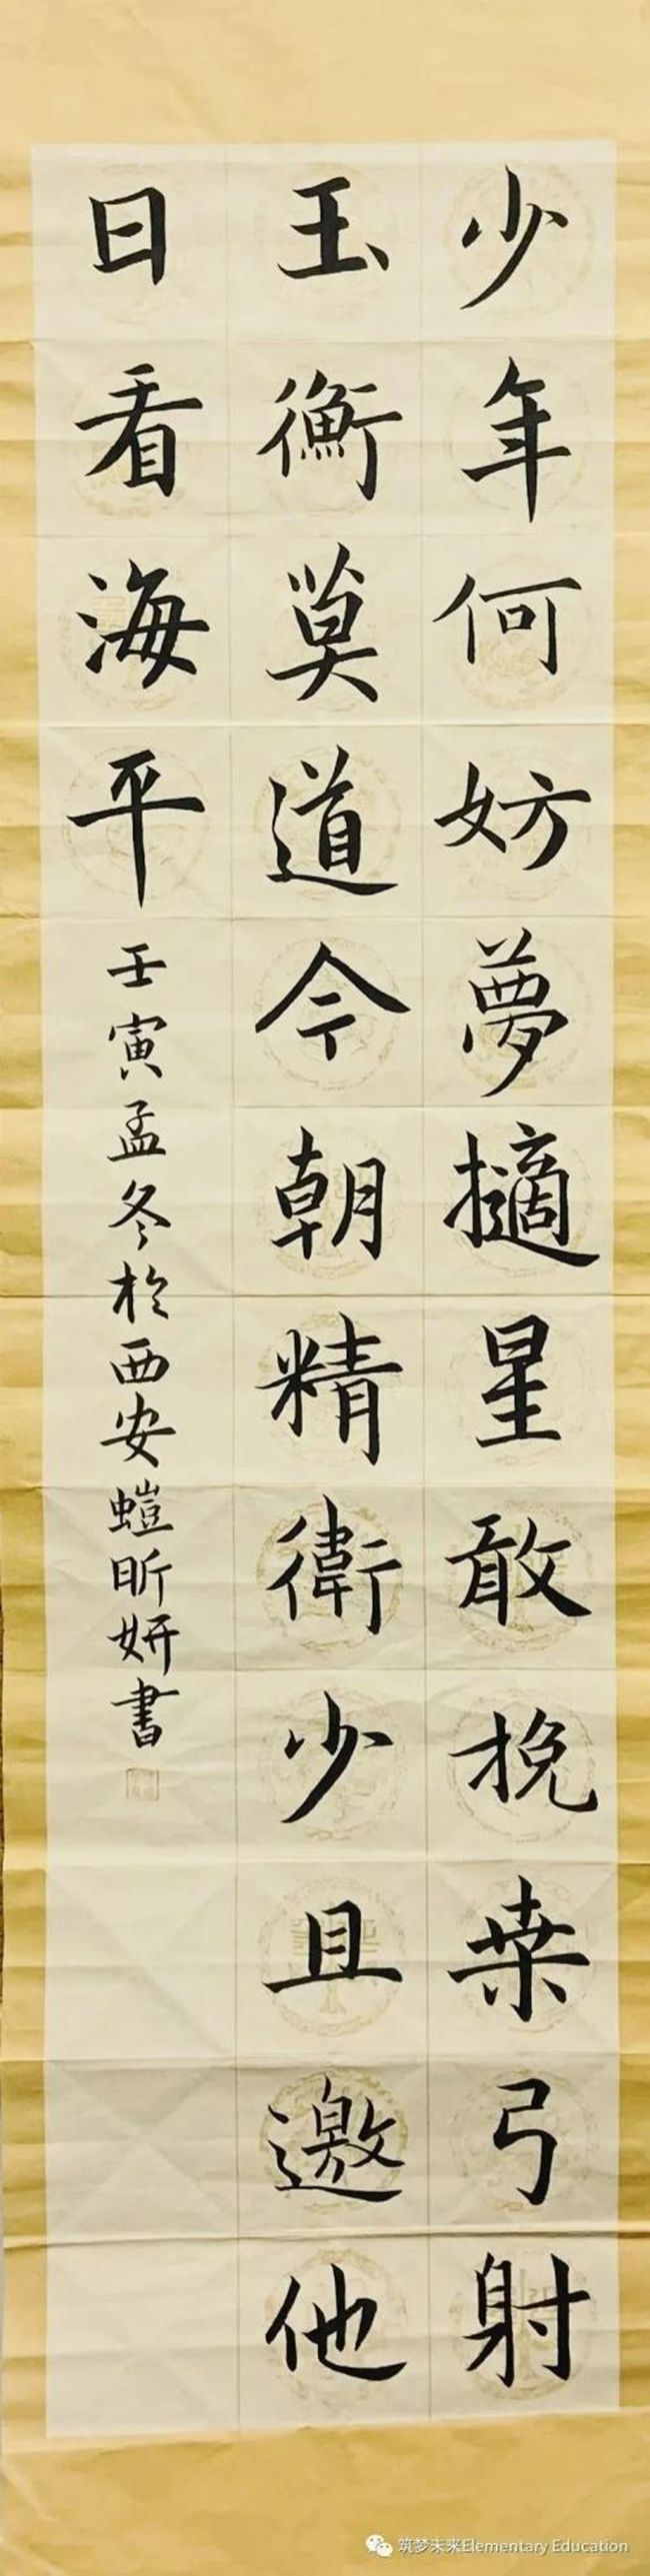 少年何妨夢擿星敢挽桒弓射
玉衡莫道今朝精衛少且邀他
日看海平
壬寅孟冬於西安螘昕妍書
筑梦未来Elementary Education